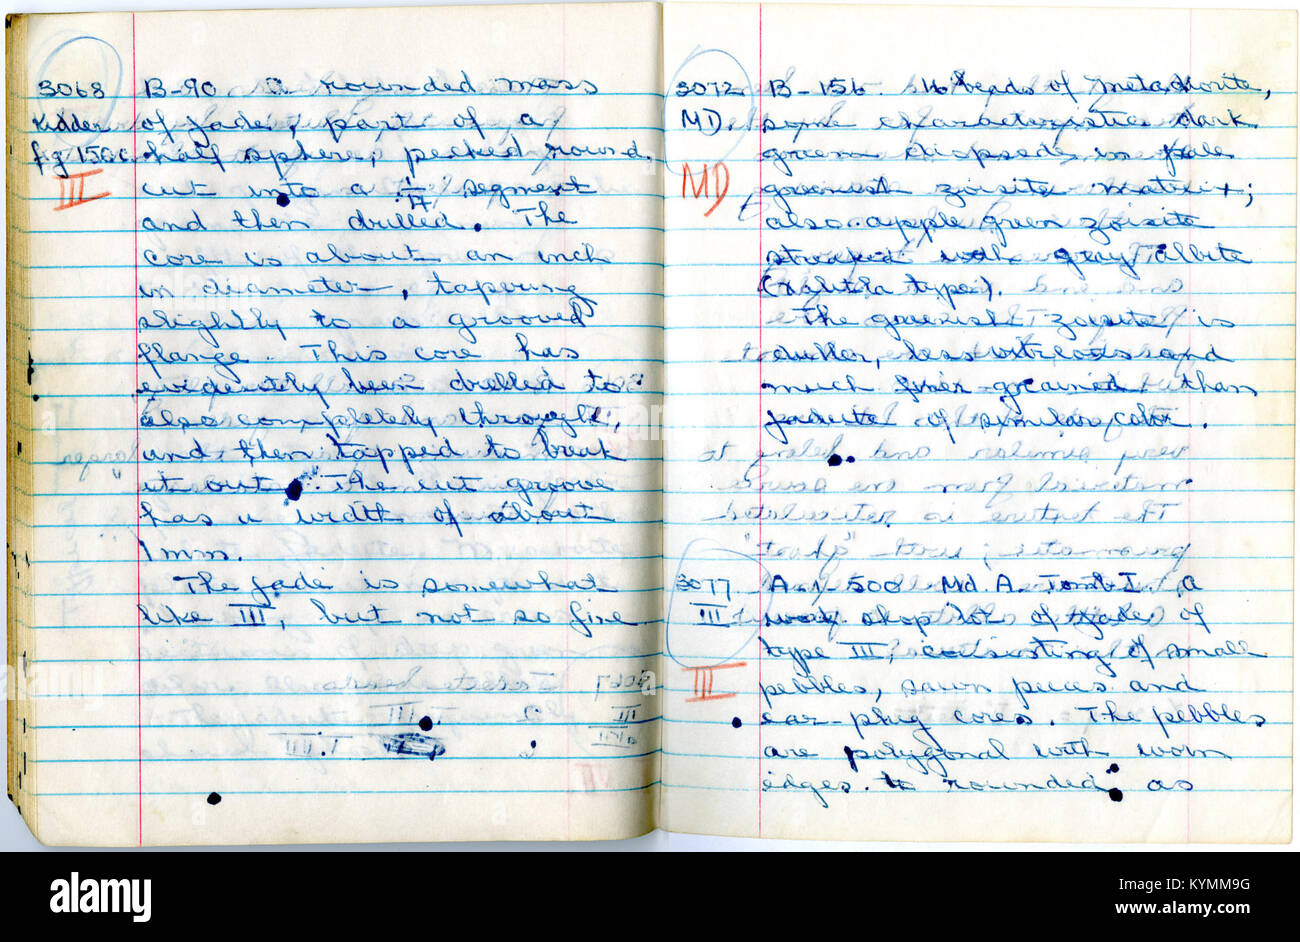 3068 B-90 A rounded mass
Kidder of jade, part of a
fig 150c half sphere, pecked round
III cut into a 1/4 segment
and then drilled. The
core is about an inch
in diameter, tapering
slightly to a grooved
flange. This core has
evidently been drilled to
also completely through,
and then tapped to break
it out. The cut groove
has a width of about
1 mm.
The jade is somewhat
like III, but not so fine
3072 B-156. 16 beads of metadiorite,
MD. some characteristic dark
green diopside in pale
MD greenish zoisite matrix;
also apple green zoisite
streaked with gray albite
type).
The greenish zoisite is
duller, less vitreous and
much finer grained than
jadeite of similar color.
3077 A-1-500 Md. A. Tomb I, a
III work shop lot of jade of
type III, consisting of small
III pebbles, sawn pieces and
ear-plug cores. The pebbles
are polygonal with worn
edges to rounded as
alamy
Image ID: KYMM9G
www.alamy.com